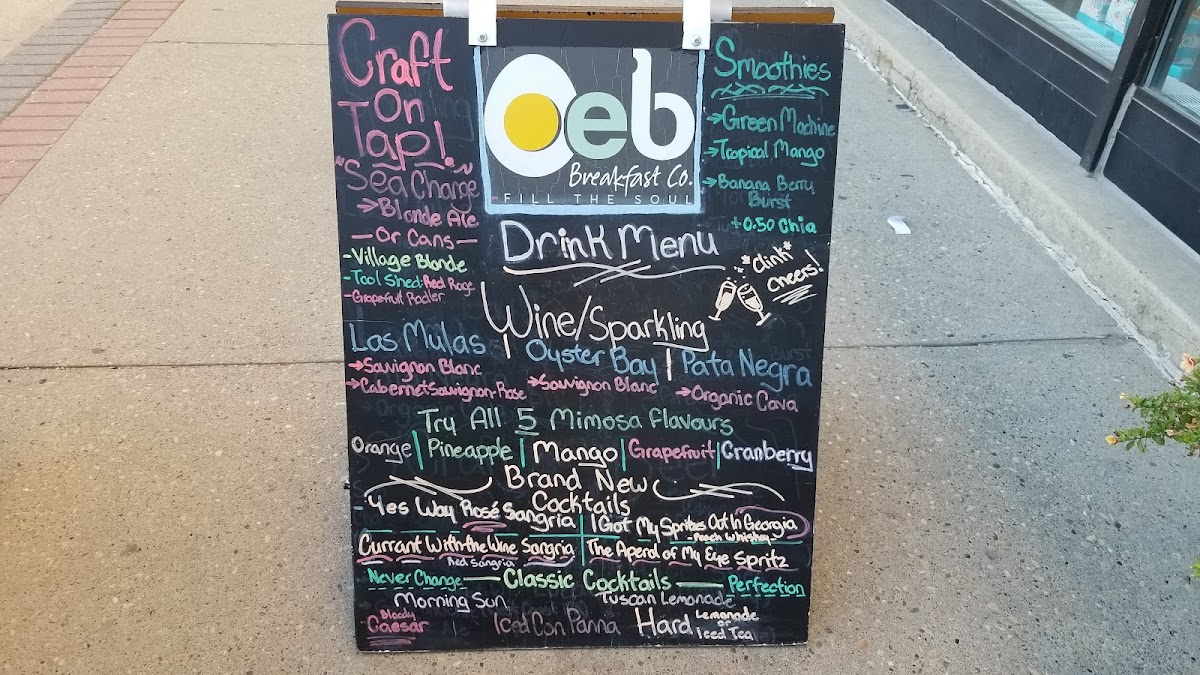 Craft
On
Tap!
~Sea Change~
→ Blonde Ale
—Or Cans—
-Village Blonde
-Tool Shed: Red Rage
-Grapefruit Radler
Oeb
Breakfast Co.
FILL THE SOUL
Smoothies
→Green Machine
→Tropical Mango
→Banana Berry
Burst
+0.50 Chia
Drink Menu
*clink*
cheers!
Wine/Sparkling
Las Mulas | Oyster Bay | Pata Negra
→Sauvignon Blanc
→Cabernet Sauvignon-Rose →Sauvignon Blanc →Organic Cava
Try All 5 Mimosa Flavours
Orange | Pineapple | Mango | Grapefruit | Cranberry
Brand New
Cocktails
Yes Way Rosé Sangria | I Got My Spritzes Out In Georgia
-Peach Whiskey-
Currant With-the Wine Sangria | The Aperol of My Eye Spritz
Red Sangria
Never Change — Classic Cocktails — Perfection
Morning Sun Tuscan Lemonade
Bloody
Caesar Iced Con Panna Hard Lemonade
or
Iced Tea